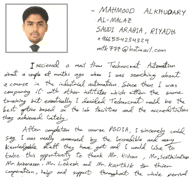 - MAHMOOD ALKHUDARY
AL-MALAZ
SAUDI ARABIA, RIYADH
+966554254329
mtk777@hotmail.com
I received a mail from Technocrat Automation
about a couple of months ago when I was searching about
a course in the industrial automation. Since then I was
comparing it with other institutes which within the same
teaching but eventually I decided Technocrat would be the
best option based on the lab facilities and the accreditation
they achieved lately.
After completion the course PGDIA, I sincerely would
say I was really amazed by the incredible and very
knowledgable staff they have got and I would like to
take this opportunity to thank Mr. Vishnu, Mr.
Mr. Lokesh and Mr. Karthik for their
cooperation, help and support throughout the whole period